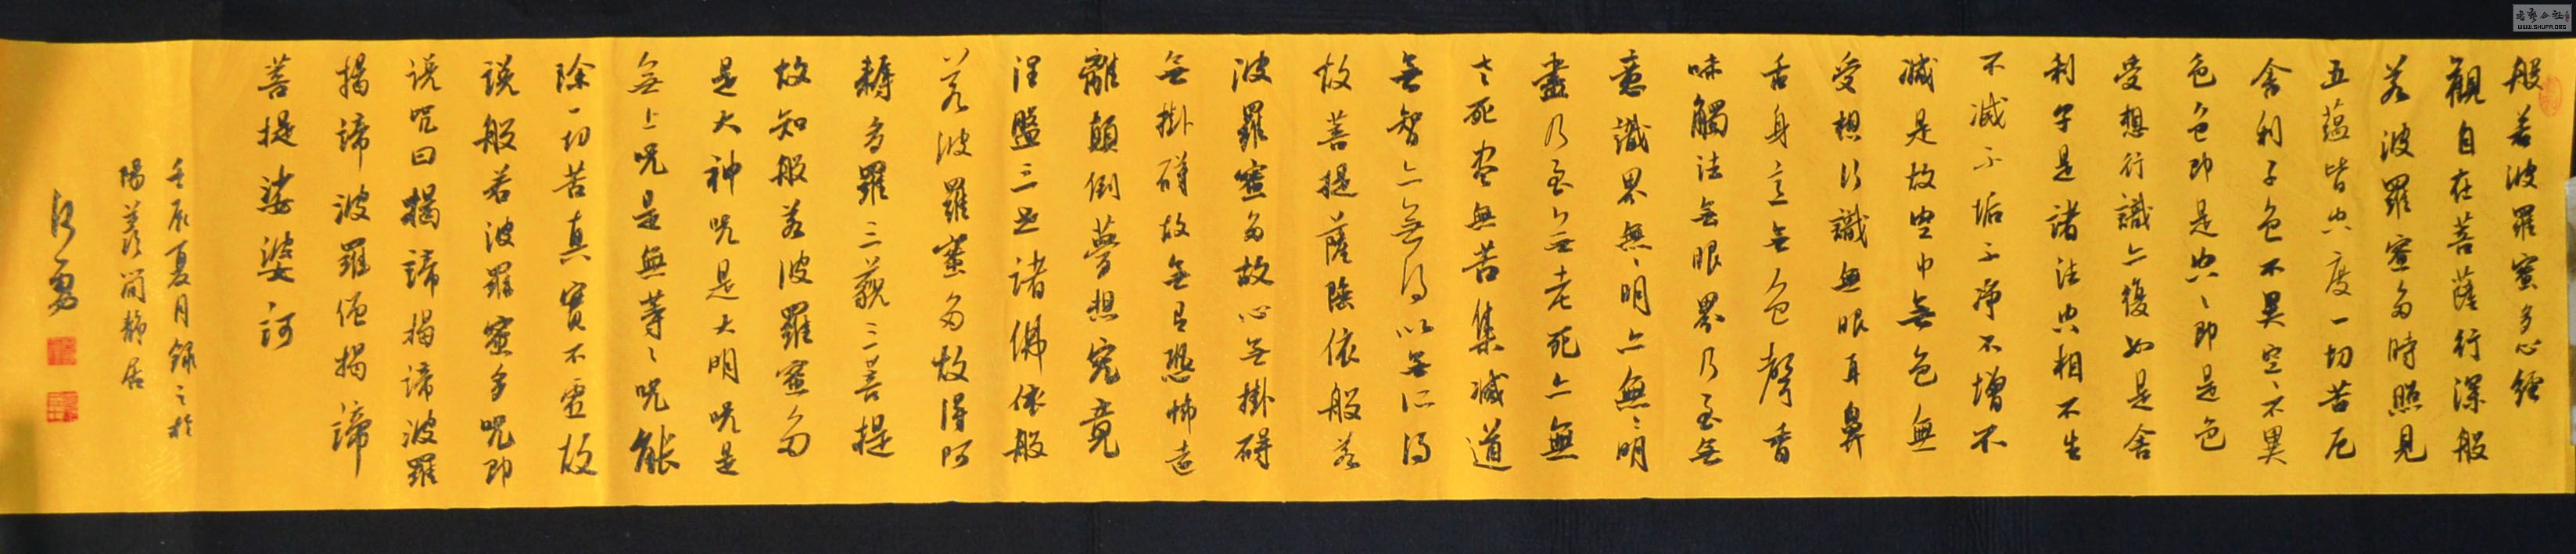 般若波羅蜜多心經
觀自在菩薩行深般
若波羅蜜多時照見
五蘊皆空度一切苦厄
舍利子色不異空々不異
色色即是空々即是色
受想行識亦復如是舍
利子是諸法空相不生
不滅不垢不淨不增不
減是故空中無色無
受想行識無眼耳鼻
舌身意無色聲香
味觸法無眼界乃至無
意識界無無明亦無無明
盡乃至無老死亦無
老死盡無苦集滅道
無智亦無得以無所得
故菩提薩陲依般若
波羅蜜多故心無掛碍
無掛碍故無有恐怖遠
離顛倒夢想究竟
涅盤三世諸佛依般
若波羅蜜多故得阿
耨多羅三藐三菩提
故知般若波羅蜜多
是大神咒是大明咒是
無上咒是無等々咒能
除一切苦真實不虛故
説般若波羅蜜多咒即
説咒曰揭諦揭諦波羅
揭諦波羅僧揭諦
菩提娑婆訶
壬辰夏月錄之於
陽羨簡靜居
WWW.SHUFA.ORG